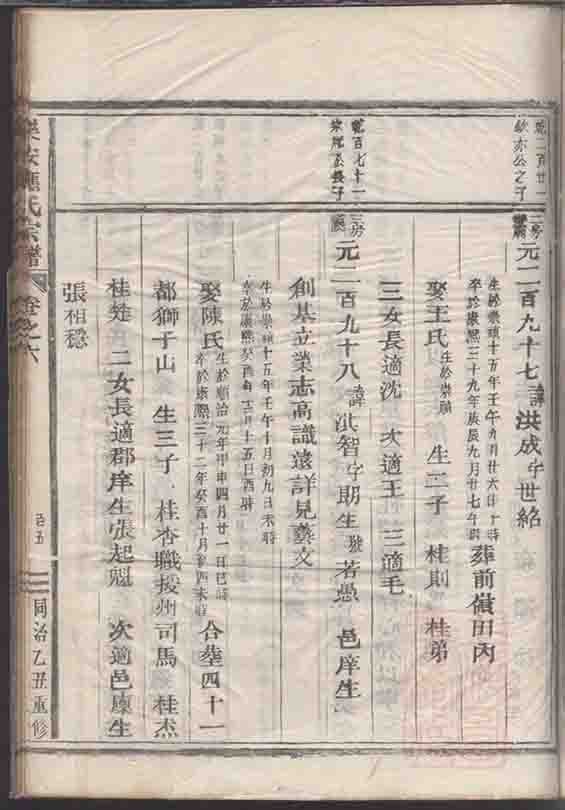 乾二百廿一
欽亦公之子
三房
元二百九十七諱洪成字世紹
生於崇禎十五年壬午九月廿六日
卒於康熙三十九年庚辰九月廿七午時
葬前嶺田內
娶王氏
生於崇禎
生二子 桂則 桂弟
三女長適沈 次適王 三適毛
乾百七十一
三房
元二百九十八諱洪智字期生號若愚 邑庠生
創基立業志高識遠詳見藝文
生於崇禎十五年壬午十月初九日未時
卒於康熙癸酉年十二月十五日酉時
娶陳氏
生於順治元年甲申四月廿一日巳時
卒於康熙三十二年癸酉十月
未時
合葬四十一
都獅子山 生三子 桂杏職授州司馬 桂杰
桂

二女長適郡庠生張起魁 次適邑廩生
張祖穩
樂安
氏宗譜
卷之六
百五
同治乙丑重修